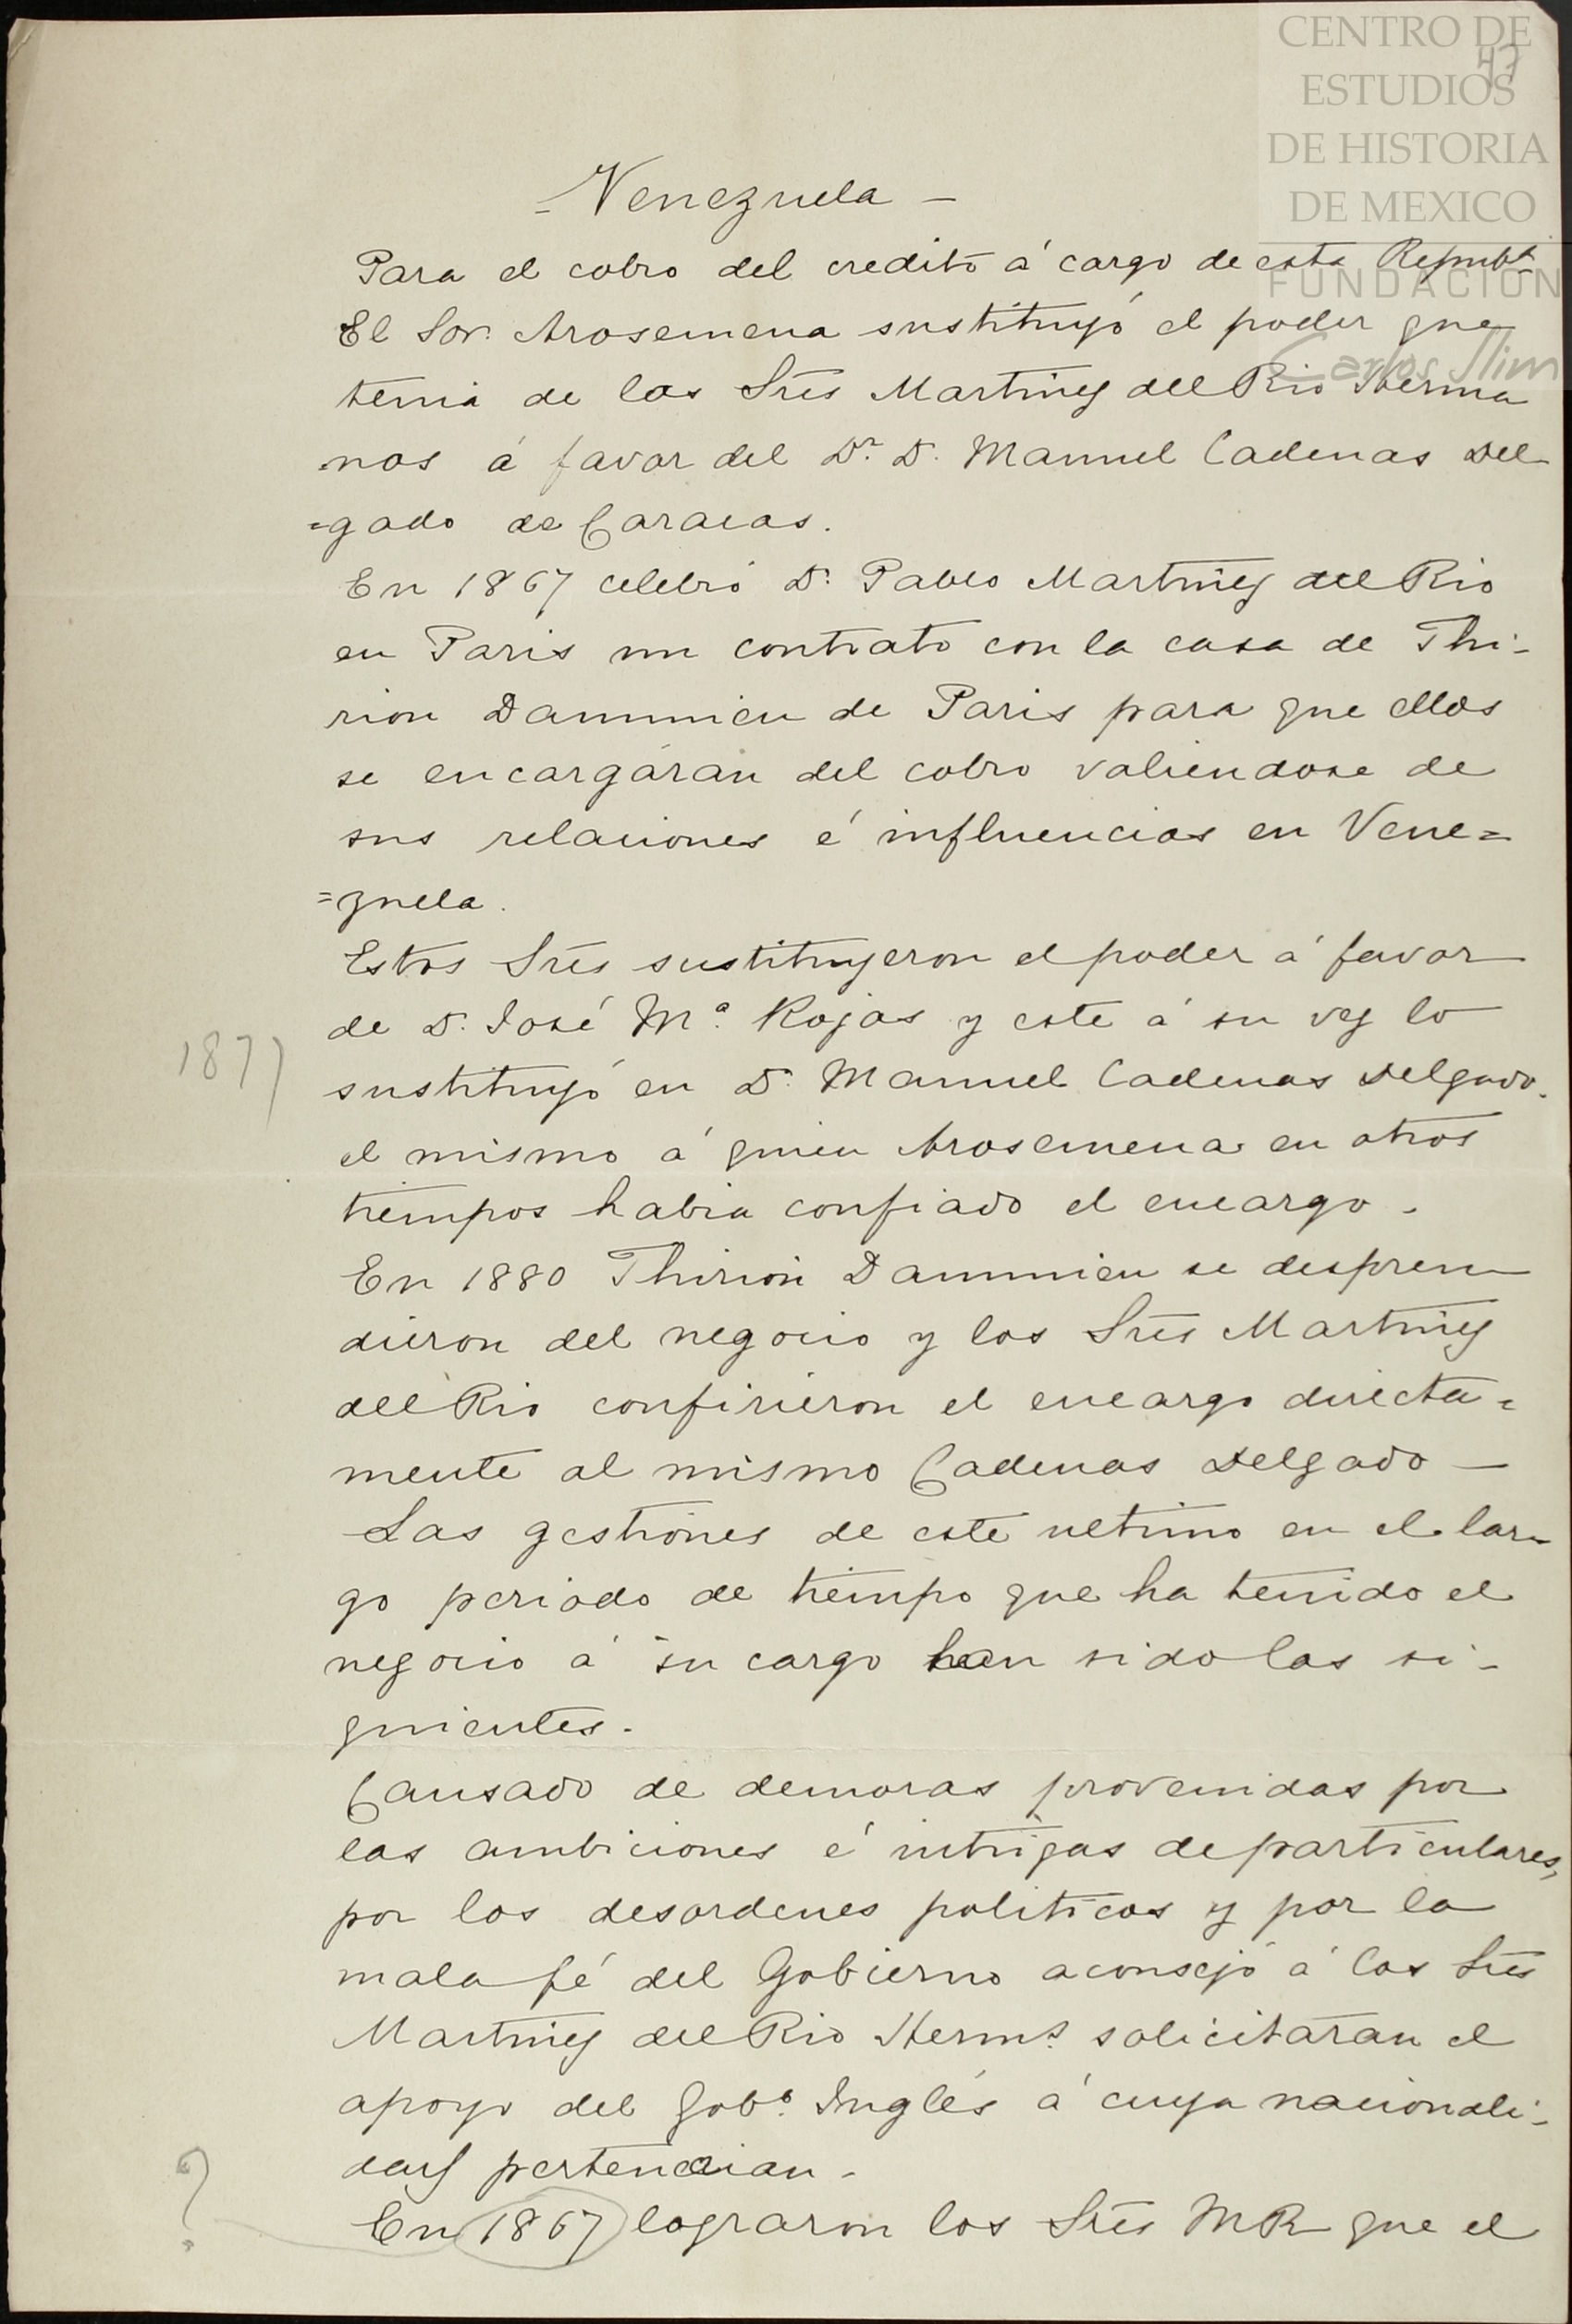 CENTRO DE
ESTUDIOS
DE HISTORIA
DE MEXICO
FUNDACION
Carlos Slim
47
= Venezuela -
Para el cobro del credito á cargo de esta Repubca
El Sor. Arosemena sustituyó el poder que
tenia de los Sres Martinez del Rio Herma
=nos á favor del Dr. D. Manuel Cadenas Del
=gado de Caracas.
En 1867 celebró D. Pablo Martinez del Rio
en Paris un contrato con la casa de Thi-
rion Dammien de Paris para que ellos
se encargáran del cobro valiendose de
sus relaciones é influencias en Vene=
=zuela.
Estos Sres sustituyeron el poder á favor
de D. José Ma. Rojas y este á su vez lo
1877
sustituyó en D. Manuel Cadenas Delgado.
el mismo á quien Arosemena en otros
tiempos habia confiado el encargo.
En 1880 Thirion Dammien se despren
dieron del negocio y los Sres Martinez
del Rio confirieron el encargo directa=
mente al mismo Cadenas Delgado —
Las gestiones de este ultimo en el lar-
go periodo de tiempo que ha tenido el
negocio á su cargo han sido las si-
guientes.
Cansado de demoras provenidas por
las ambiciones é intrigas de particulares,
por los desordenes politicos y por la
mala fé del Gobierno aconsejó á los Sres
Martinez del Rio Herms. solicitaran el
apoyo del Gobo. Inglés á cuya nacionali-
dad pertenecian.
?
En 1867 lograron los Sres MR que el